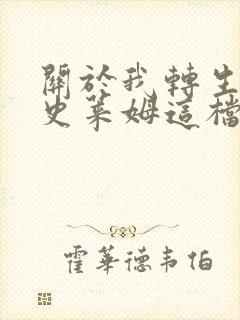 關於我轉生
史萊姆這檔
霍華德韋伯